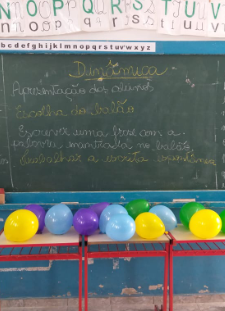 N O P Q R S T U V
n o p q r s t u v
a b c d e f g h i j k l m n o p q r s t u v w x y z
Dinâmica
Apresentação dos alunos
Escolha do balão
Escrever uma frase com a
palavra no balão
Trabalhar a escrita espontânea